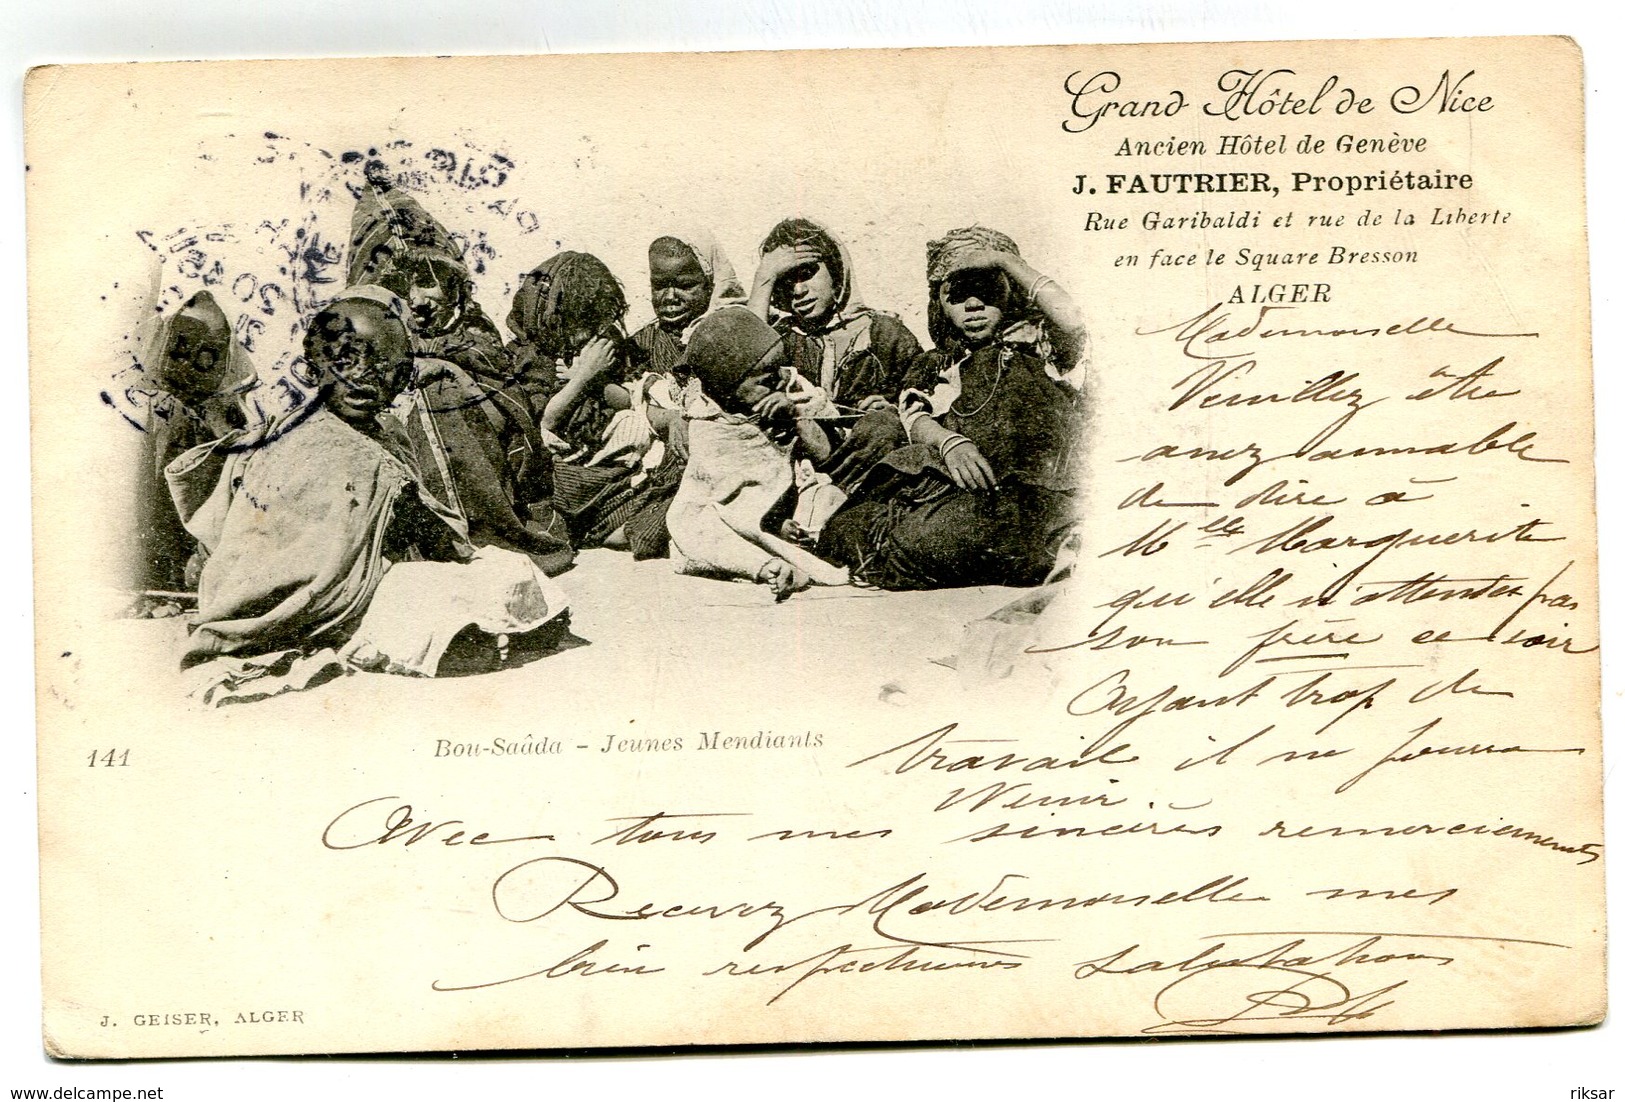 Grand Hôtel de Nice
Ancien Hôtel de Genève
J. FAUTRIER, Propriétaire
Rue Garibaldi et rue de la Liberte
en face le Square Bresson
ALGER
Mademoiselle
Veuillez être
assez aimable
de dire à
Melle Marguerite
qu'elle n'attende pas
son frère ce soir
Ayant trop de
travail il ne pourra
venir.
Avec tous mes sincères remerciements
Recevez Mademoiselle mes
bien respectueuses salutations
141
Bou-Saâda - Jeunes Mendiants
J. GEISER, ALGER
riksar